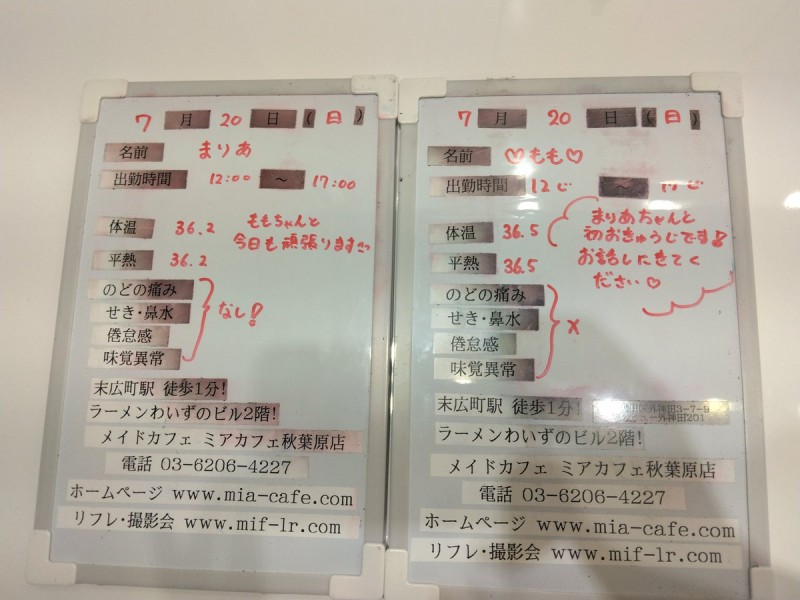 7月20日(日)
名前 まりあ
出勤時間 12:00 ～ 17:00
体温 36.2
ももちゃんと
今日も頑張ります
平熱 36.2
のどの痛み
せき・鼻水
倦怠感
味覚異常
なし!
末広町駅 徒歩1分!
ラーメンわいずのビル2階!
メイドカフェ ミアカフェ秋葉原店
電話 03-6206-4227
ホームページ www.mia-cafe.com
リフレ・撮影会 www.mif-lr.com
7月20日(日)
名前 ♡もも♡
出勤時間 12じ ～ 17じ
体温 36.5
まりあちゃんと
初おきゅうじです!
お話しにきてく
ださい♡
平熱 36.5
のどの痛み
せき・鼻水
倦怠感
味覚異常
x
末広町駅 徒歩1分!
外神田3-7-9
外神田201
ラーメンわいずのビル2階!
メイドカフェ ミアカフェ秋葉原店
電話 03-6206-4227
ホームページ www.mia-cafe.com
リフレ・撮影会 www.mif-lr.com